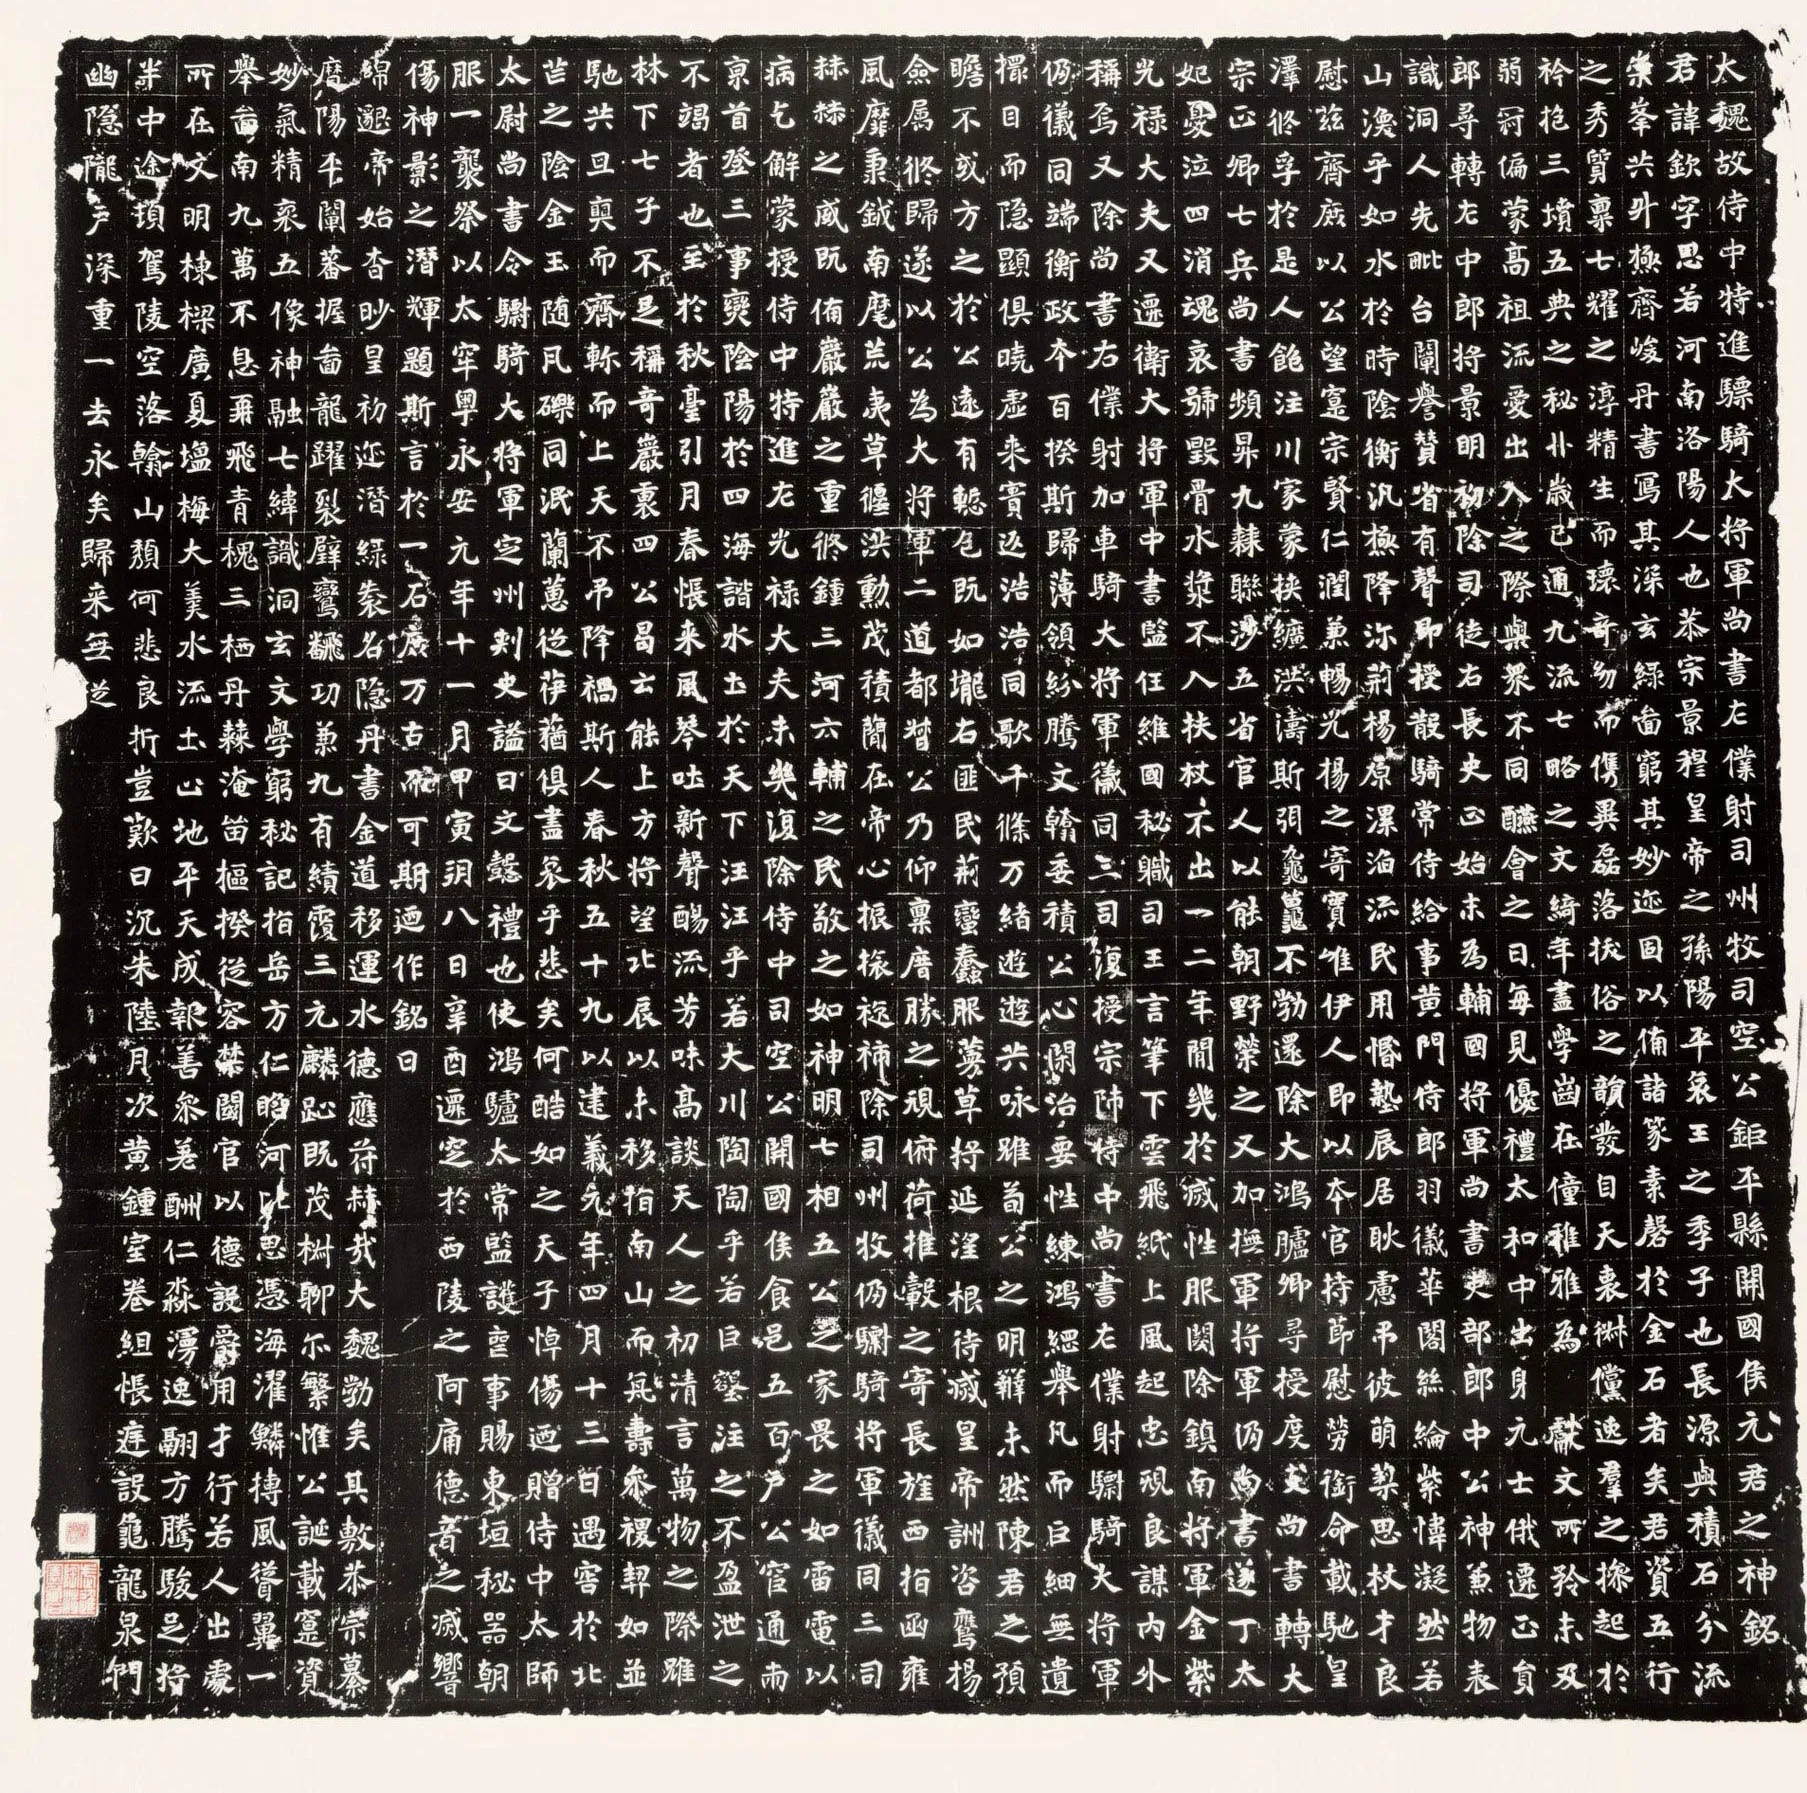 大魏故侍中特進驃騎大將軍尚書左僕射司州牧司空公鉅平縣開國侯元君之神銘
君諱欽字思若河南洛陽人也恭宗景穆皇帝之孫陽平哀王之季子也長源與積石分流
崇峯共升極齊峻丹書寫其深玄綠啚窮其妙迩固以俻諸篆素磬於金石者矣君資五行
之秀質稟七耀之淳精生而瓌奇幼而儁異磊落拔俗之韻發自天衷俶儻逸羣之操起於
衿抱三墳五典之秘卝歲已通九流七略之文綺年盡學齒在僮稚雅為獻文所矜未及
弱冠偏蒙高祖流愛出入之際與衆不同醼會之日每見優禮太和中出身元士俄遷正員
郎尋轉左中郎將景明初除司徒右長史正始末為輔國將軍尚書吏部郎中公神兼物表
識洞人先毗台闡譽贊省有聲即授散騎常侍給事黃門侍郎羽儀華閣絲綸紫幃凝然若
山渙乎如水於時陰衡汎極降沴荊楊原濕淊流民用惛墊辰居耿慮弔彼萌棃思杖才良
慰茲齊庶以公望寔宗賢仁潤兼暢光揚之寄寶唯伊人即以本官持節慰勞銜命載馳皇
澤俻孚於是人飽注川家蒙挾纊洪濤斯弭龜鼉不勃還除大鴻臚卿尋授度支尚書轉大
宗正卿七兵尚書頻昇九棘聯涉五省官人以能朝野榮之又加撫軍將軍仍尚書遂丁太
妃憂泣四消魂哀號毀骨水漿不入扶杖不出一二年閒幾於滅性服闋除鎮南將軍金紫
光祿大夫又遷衛大將軍中書監任維國秘職司王言筆下雲飛紙上風起忠規良謀內外
稱焉又除尚書右僕射加車騎大將軍儀同三司復授宗師特中尚書左僕射驃騎大將軍
仍儀同端衡政本百揆斯歸薄領紛騰文翰委積公心閑治要性練鴻綱舉凡而巨細無遺
擢目而隱顯俱曉虛來實返浩浩同歌千條万緒遊遊共咏雖荀公之明辯未然陳君之預
瞻不或方之於公遠有慙色既如壠右匪民荊蠻蠢服募草將延滛根待滅皇帝詶咨鷹楊
僉属攸歸遂以公為大將軍二道都督公乃仰稟廟勝之規俯荷推轂之寄長旌西指函雍
風靡秉鉞南麾荒夷草偃洪勳茂積簡在帝心振旅旋斾除司州牧仍驃騎將軍儀同三司
赫赫之威既俻巖巖之重攸鍾三河六輔之民敬之如神明七相五公之家畏之如雷電以
病乞解蒙授侍中特進左光祿大夫未幾復除侍中司空公開國侯食邑五百戶公官通雨
京首登三事爕陰陽於四海諧水土於天下汪汪乎若大川陶陶乎若巨壑注之不盈泄之
不竭者也至於秋臺引月春悵來風琴吐新聲觴流芳味高談天人之初清言萬物之際雖
林下七子不足稱奇巖裏四公曷云能上方將望北辰以未移指南山而氣壽叅稷契如並
馳共旦奭而齊軫而上天不弔降禍斯人春秋五十九以建義元年四月十三日遇害於北
芒之陰金玉随凡礫同泯蘭蕙從葎蕕俱盡哀乎悲矣何酷如之天子悼傷迺贈侍中太師
太尉尚書令驃騎大將軍定州刺史諡曰文懿禮也使鴻臚太常監護喪事賜東垣秘器朝
服一襲祭以太牢粵永安元年十一月甲寅朔八日辛酉遷窆於西陵之阿痛德音之滅響
傷神影之潛輝題斯言於一石庶万古而可期迺作銘曰
綿邈帝始杳眇皇初迩潛綠袠名隱丹書金道移運水德應苻赫哉大魏勃矣其敷恭宗纂
曆陽平闡蕃握啚龍躍裂壁鸞飜功兼九有績霞三元麟趾既茂椒聊尒繁惟公誕載寔資
妙氣精衷五像神融七緯識洞玄文學窮秘記指岳方仁瞻河比思憑海濯鱗摶風聳翼一
舉啚南九萬不息再飛青槐三栖丹棘淹留樞揆從容禁闥官以德設爵用才行若人出處
所在文明棟樑廣夏塩梅大美水流土止地平天成報善叅差酬仁淼漫逸翮方騰駿足將
半中途頓駕陵空落翰山頹何悲良折豈歎日沉朱陸月次黃鍾室卷組悵庭設龜龍泉門
幽隱隴戶深重一去永矣歸来無從